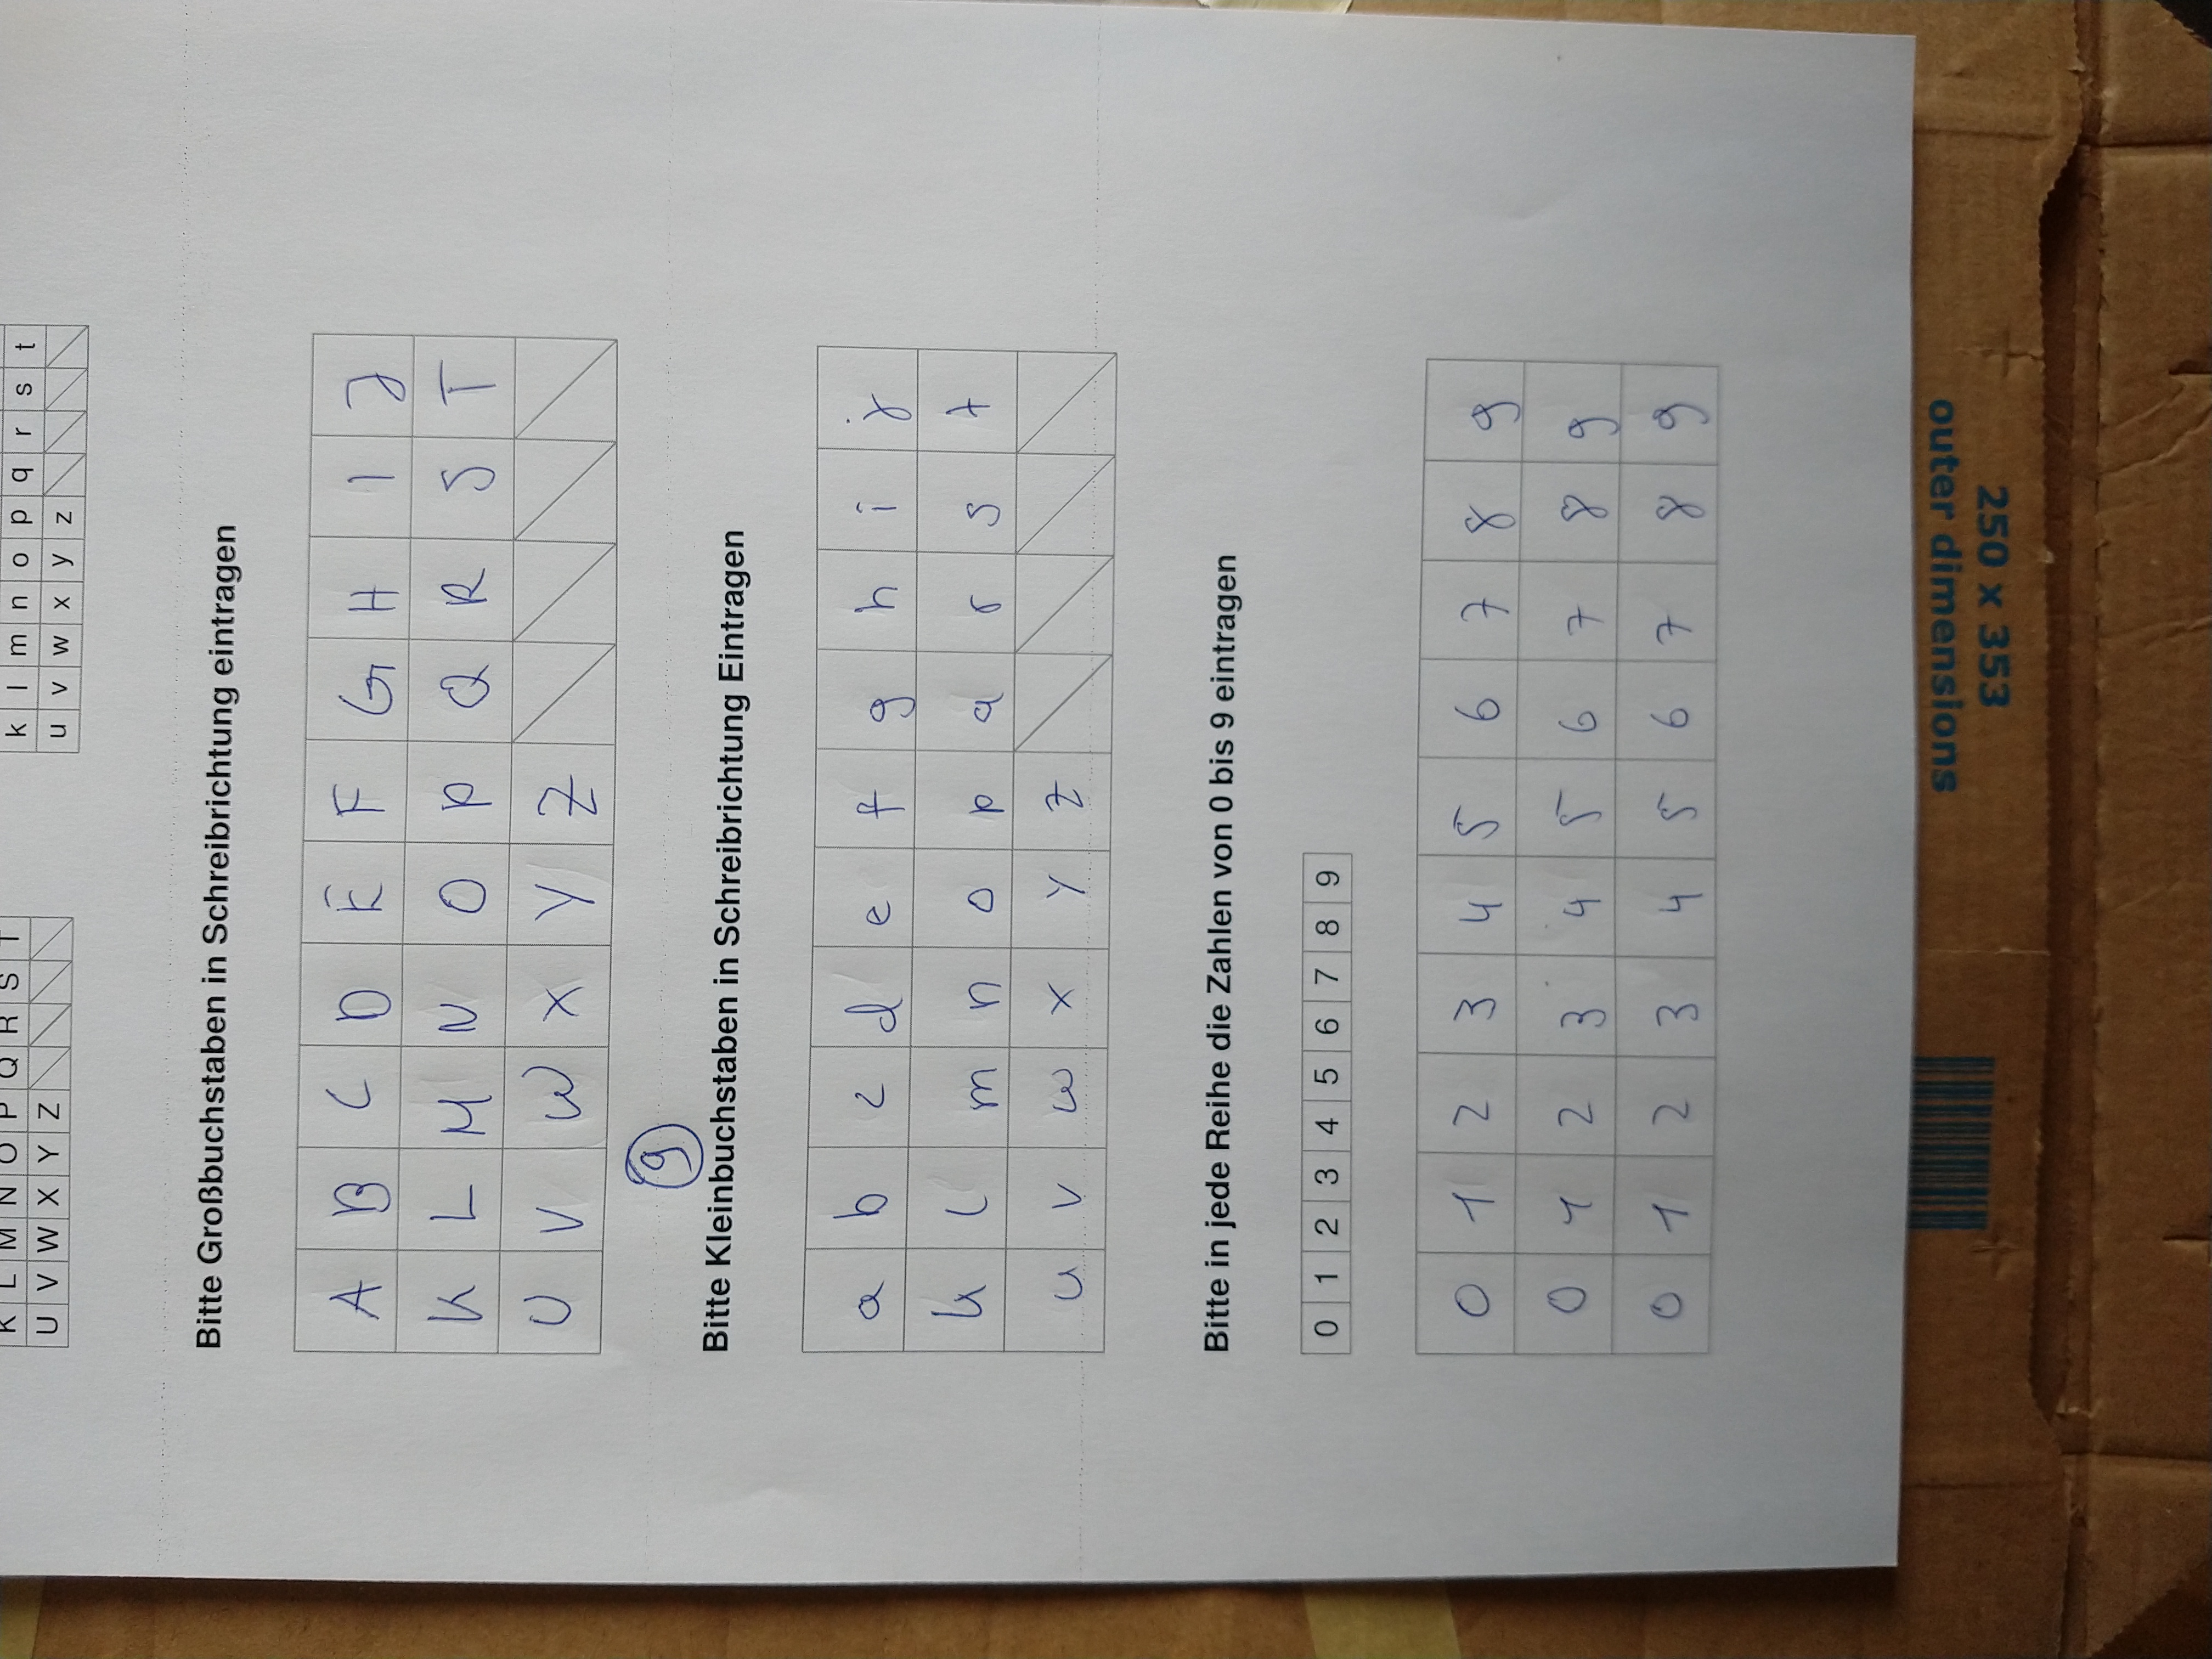 K L M N O P Q R S T
U V W X Y Z
k l m n o p q r s t
u v w x y z
Bitte Großbuchstaben in Schreibrichtung eintragen
A B C D E F G H I J
K L M N O P Q R S T
U V W X Y Z
9
Bitte Kleinbuchstaben in Schreibrichtung Eintragen
a b c d e f g h i j
k l m n o p q r s t
u v w x y z
Bitte in jede Reihe die Zahlen von 0 bis 9 eintragen
0 1 2 3 4 5 6 7 8 9
0 1 2 3 4 5 6 7 8 9
0 1 2 3 4 5 6 7 8 9
0 1 2 3 4 5 6 7 8 9
250 x 353
outer dimensions